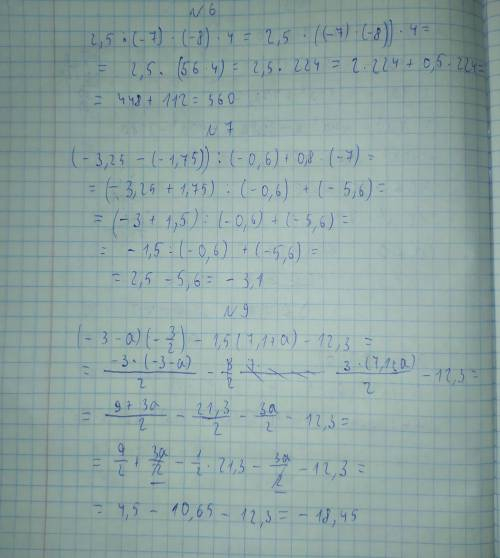 №6
2,5 · (-7) · (-8) · 4 = 2,5 · ((-7) · (-8)) · 4 =
= 2,5 · (56 · 4) = 2,5 · 224 = 2 · 224 + 0,5 · 224 =
= 448 + 112 = 560
№7
(-3,25 - (-1,75)) : (-0,6) + 0,8 · (-7) =
= (-3,25 + 1,75) : (-0,6) + (-5,6) =
= (-3 + 1,5) : (-0,6) + (-5,6) =
= -1,5 : (-0,6) + (-5,6) =
= 2,5 - 5,6 = -3,1
№9
(-3-a)(-3/2) - 1,5(7,1+a) - 12,3 =
= -3·(-3-a)/2 - 3·(7,1+a)/2 - 12,3 =
= 9+3a/2 - 21,3/2 - 3a/2 - 12,3 =
= 9/2 + 3a/2 - 1/2 · 21,3 - 3a/2 - 12,3 =
= 4,5 - 10,65 - 12,3 = -18,45